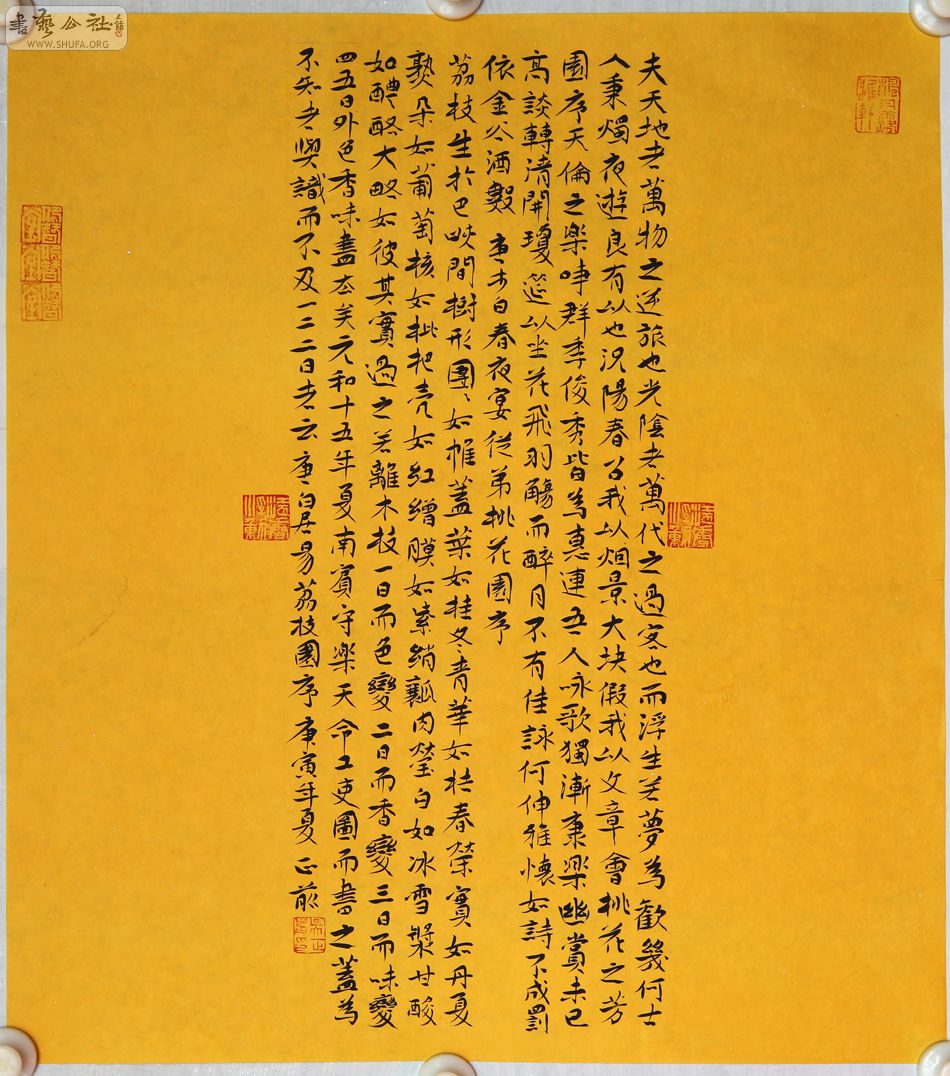 書藝公社
WWW.SHUFA.ORG
夫天地者萬物之逆旅也光陰者萬代之過客也而浮生若夢為歡幾何古
人秉燭夜遊良有以也況陽春召我以烟景大块假我以文章會桃花之芳
園序天倫之樂事群季俊秀皆為惠連吾人咏歌獨漸康樂幽賞未已
高談轉清開瓊筵以坐花飛羽觴而醉月不有佳詠何伸雅懷如詩不成罰
依金谷酒數 唐李白春夜宴從弟桃花園序
荔枝生於巴峽間樹形團〻如帷蓋葉如桂冬青華如桔春榮實如丹夏
熟朵如葡萄核如枇杷壳如紅繒膜如紫綃瓤肉瑩白如冰雪漿甘酸
如醴酪大略如彼其實過之若離本枝一日而色變二日而香變三日而味變
四五日外色香味盡去矣元和十五年夏南賓守樂天命工吏圖而書之蓋為
不知者與識而不及一二三日者云唐白居易荔枝圖序 庚寅年夏 正